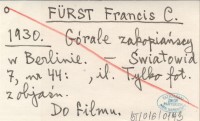 FÜRST Francis C.
1930. Górale zakopiańscy
w Berlinie. — Światowid
7, nr 44: , il. Tylko fot.
z objaśn.
Do filmu.